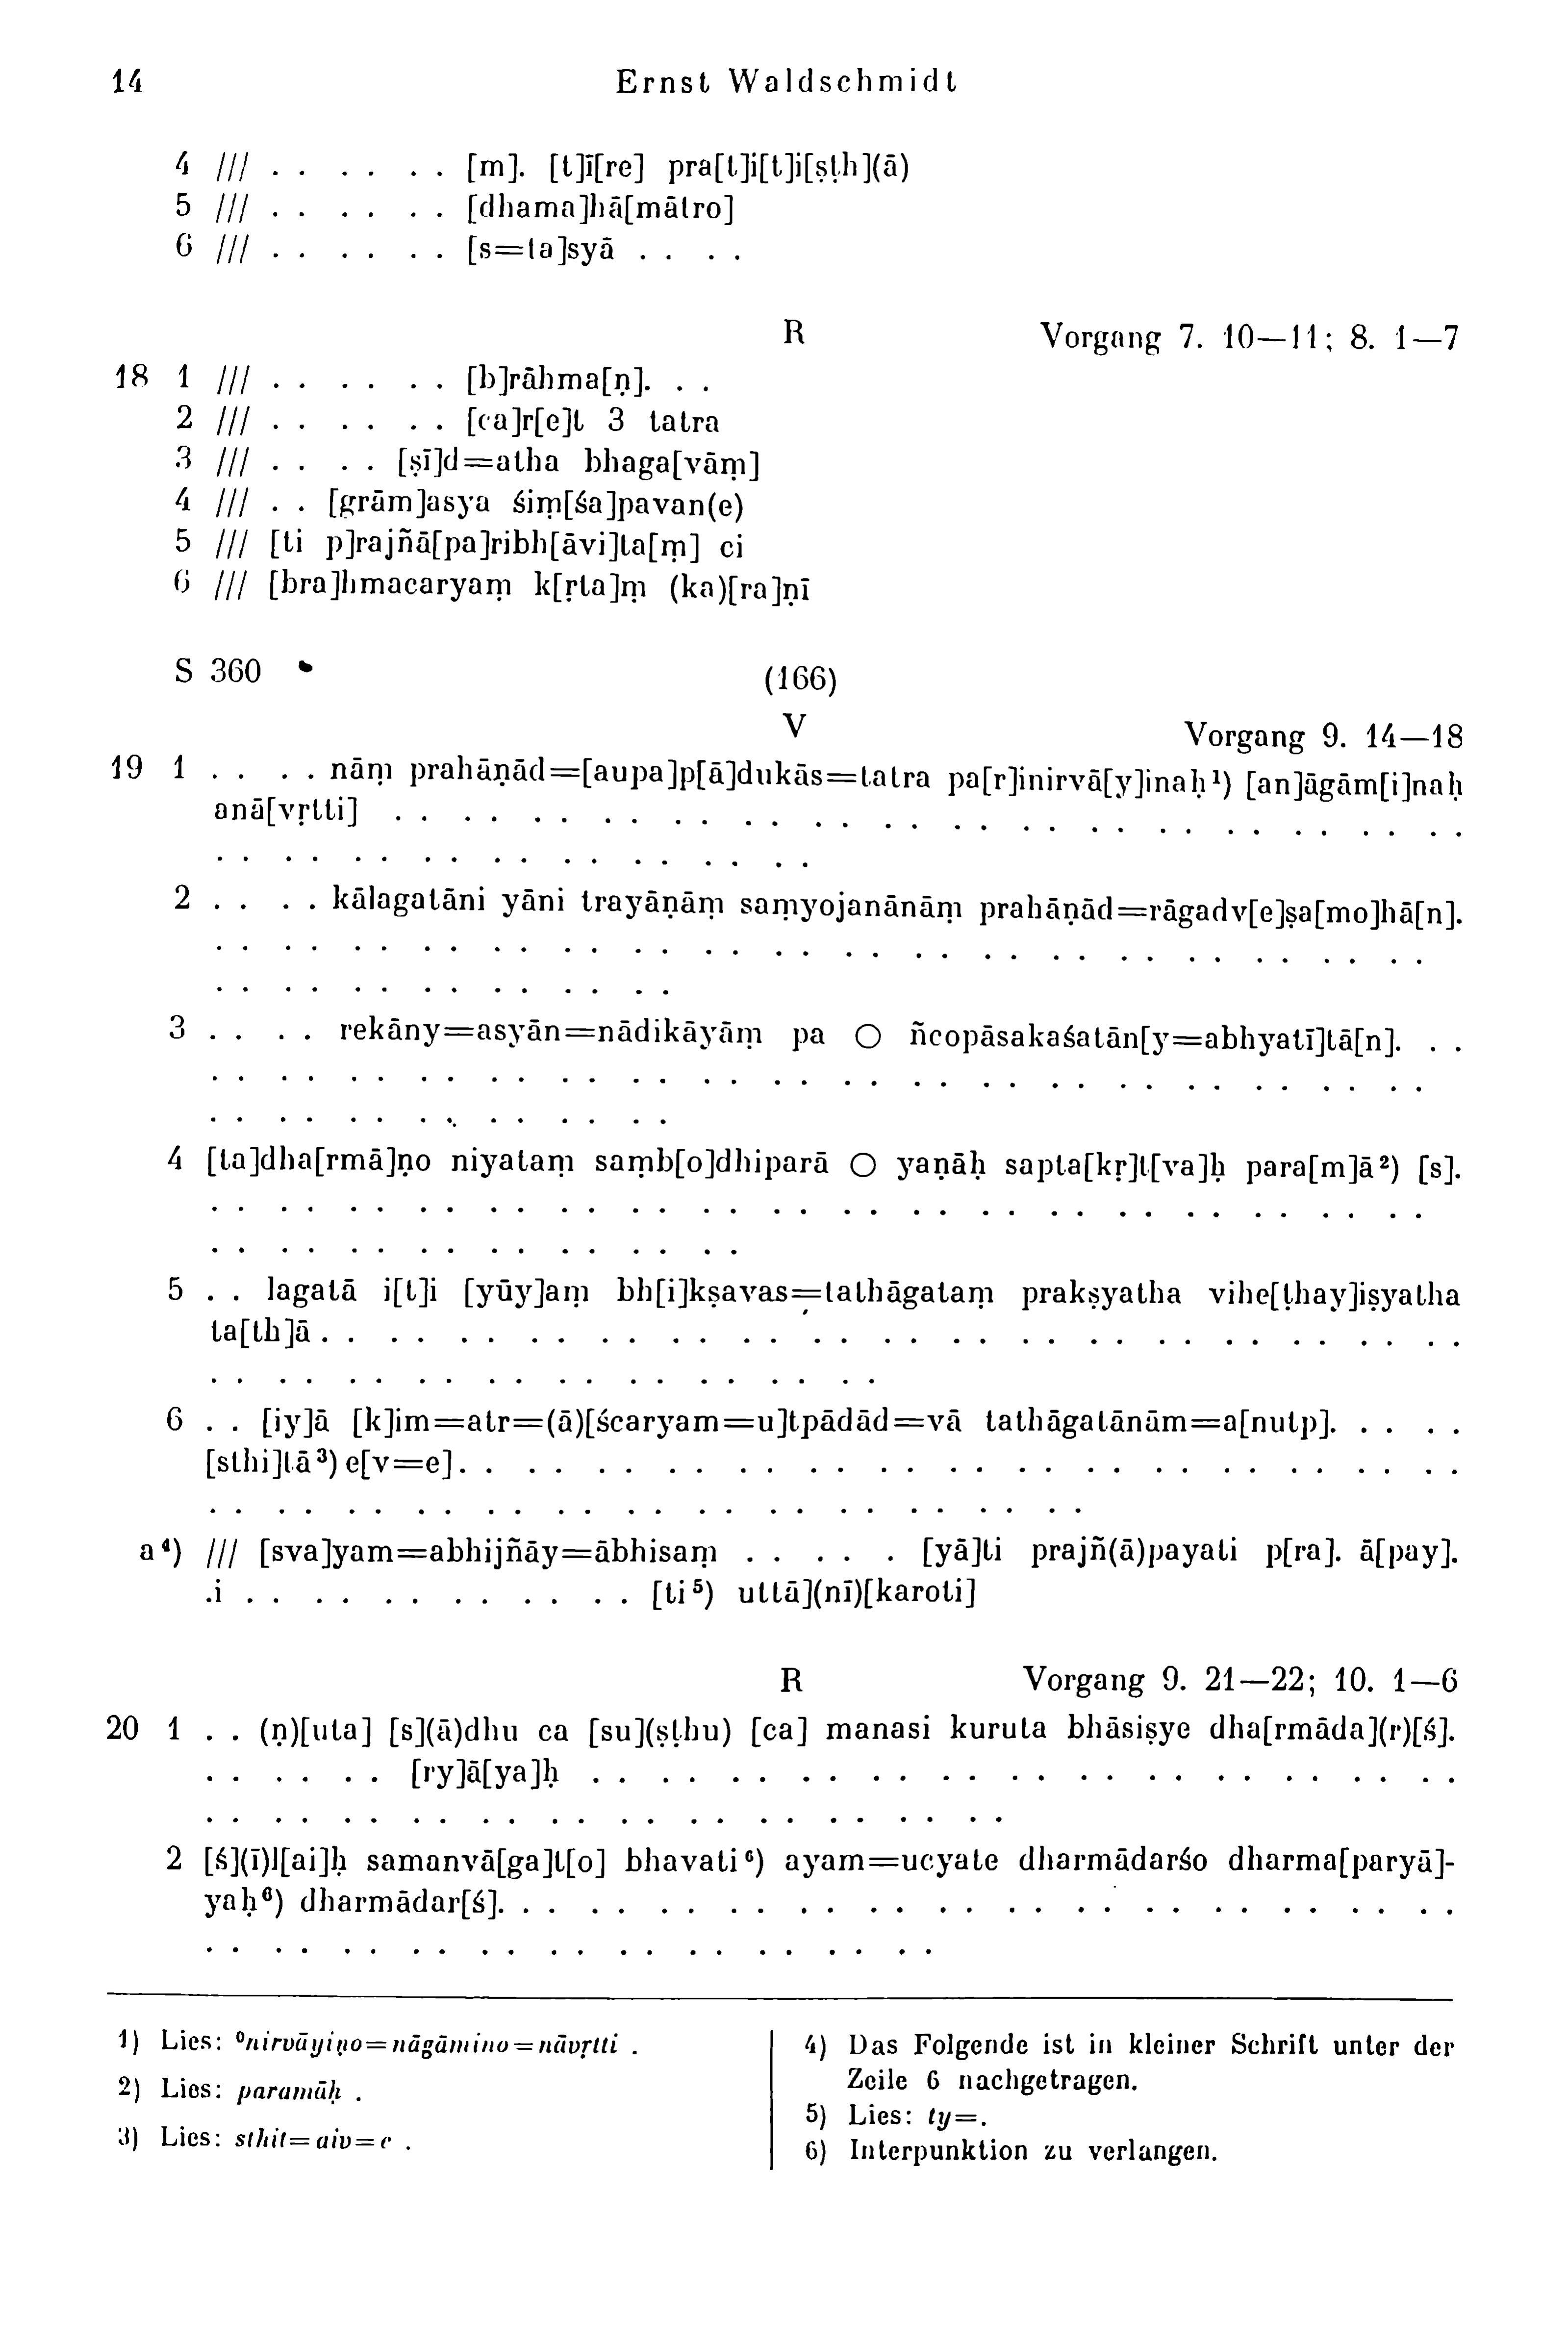 14 Ernst Waldschmidt
4 /// . . . . . . [m]. [t]ī[re] pra[t]i[t]i[ṣṭh](ā)
5 /// . . . . . . [dhama]hā[mātro]
6 /// . . . . . . [s=ta]syā . . . .
R Vorgang 7. 10—11; 8. 1—7
18 1 /// . . . . . . [b]rāhma[ṇ]. . .
2 /// . . . . . . [ca]r[e]t 3 tatra
3 /// . . . . [ṣī]d=atha bhaga[vāṃ]
4 /// . . [grām]asya śiṃ[śa]pavan(e)
5 /// [ti p]rajñā[pa]ribh[āvi]ta[ṃ] ci
6 /// [bra]hmacaryaṃ k[ṛta]ṃ (ka)[ra]ṇī
S 360 (166)
V Vorgang 9. 14—18
19 1 . . . . nāṃ prahāṇād=[aupa]p[ā]dukās=tatra pa[r]inirvā[y]inaḥ¹) [an]āgām[i]naḥ
anā[vṛtti] . . . . . . . . . . . . . . . . . . . . . . . . . . . . . . . .
. . . . . . . . . . . . . . . . . .
2 . . . . kālagatāni yāni trayāṇāṃ saṃyojanānāṃ prahāṇād=rāgadv[e]ṣa[mo]hā[n].
. . . . . . . . . . . . . . . . . . . . . . . . . . . . . . . . . . . .
. . . . . . . . . . . . . .
3 . . . . rekāny=asyān=nādikāyāṃ pa ○ ñcopāsakaśatān[y=abhyatī]tā[n]. . .
. . . . . . . . . . . . . . . . . . . . . . . . . . . . . . . . . . . .
. . . . . . . . . . . . . .
4 [ta]dha[rmā]ṇo niyataṃ saṃb[o]dhiparā ○ yaṇāḥ sapta[kṛ]t[va]ḥ para[m]ā²) [s].
. . . . . . . . . . . . . . . . . . . . . . . . . . . . . . . . . . . .
. . . . . . . . . . . . . . . .
5 . . lagatā i[t]i [yūy]aṃ bh[i]kṣavas=tathāgataṃ prakṣyatha vihe[ṭhay]iṣyatha
ta[th]ā . . . . . . . . . . . . . . . . . . . . . . . . . . . . . . . . . .
. . . . . . . . . . . . . . . . . . . .
6 . . [iy]ā [k]im=atr=(ā)[ścaryam=u]tpādād=vā tathāgatānām=a[nutp]. . . . .
[sthi]tā³) e[v=e]. . . . . . . . . . . . . . . . . . . . . . . . . . . . . .
. . . . . . . . . . . . . . . . . . . . . . . . . .
a⁴) /// [sva]yam=abhijñāy=ābhisaṃ . . . . . [yā]ti prajñ(ā)payati p[ra]. ā[pay].
.i . . . . . . . . . . . . [ti⁵) uttā](nī)[karoti]
R Vorgang 9. 21—22; 10. 1—6
20 1 . . (ṇ)[uta] [s](ā)dhu ca [su](ṣṭhu) [ca] manasi kuruta bhāsiṣye dha[rmāda](r)[ś].
. . . . . . [ry]ā[ya]ḥ . . . . . . . . . . . . . . . . . . . . . . . . . .
. . . . . . . . . . . . . . . . . . . . . . . .
2 [ś](ī)l[ai]ḥ samanvā[ga]t[o] bhavati⁶) ayam=ucyate dharmādarśo dharma[paryā]-
yaḥ⁶) dharmādar[ś]. . . . . . . . . . . . . . . . . . . . . . . . . . . . .
. . . . . . . . . . . . . . . . . . . . . .
1) Lies: ⁰nirvāyiṇo=nāgāmino=nāvṛtti .
2) Lies: paramāḥ .
3) Lies: sthit=aiv=e .
4) Das Folgende ist in kleiner Schrift unter der
Zeile 6 nachgetragen.
5) Lies: ty=.
6) Interpunktion zu verlangen.